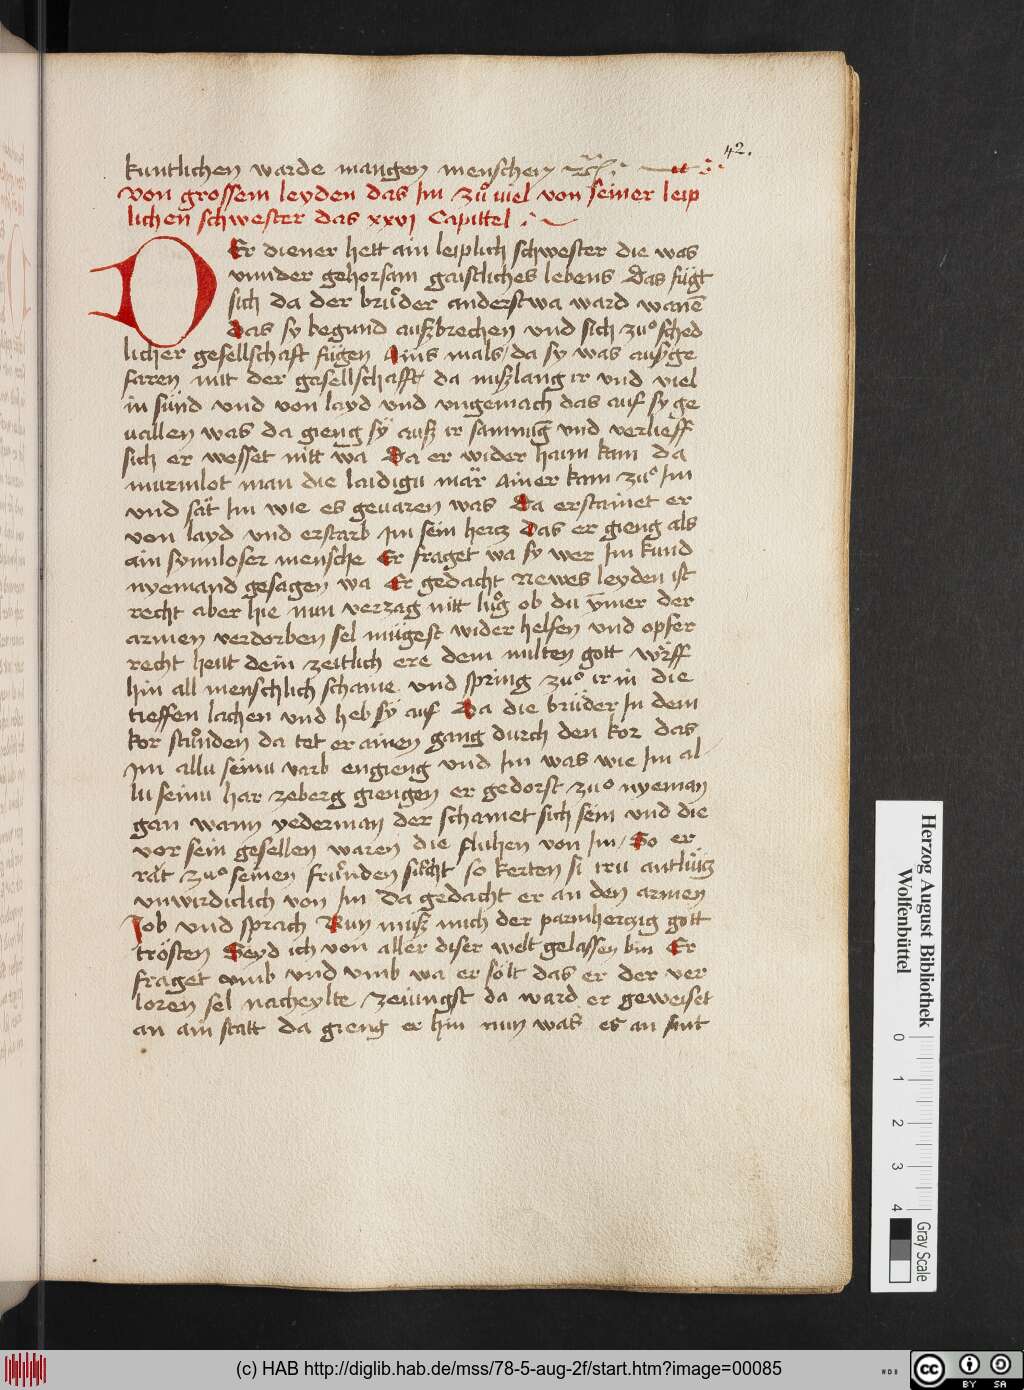 42.
kuntlichen warde mangen menschen etc.
von grossem leyden das Im zuͦ viel von seiner leip
lichen schwester das xxvj Capittel
DEr diener hett ain leiplich schwester die was
vnnder gehorsam gaistliches lebens Das fügt
sich da der bruͦder anderstwa ward wanē
das sy begund außbrechen vnd sich zuͦ sched
licher gesellschaft fügen Ains mals / da sy was auszge
faren mit der gesellschafft da miszlang ir vnd viel
in sünd vnd von layd vnd vngemach das auf sy ge
uallen was da gieng sÿ ausz ir samnūg vnd verlieff
sich er wesset nitt wa Da er wider haim kam da
murmlot man die laidigu mär ainer kam zuͦ Im
vnd sät Im wie es geuaren was Da erstainet er
von layd vnd erstarb Im sein hertz Das er gieng als
ain synnloser mensche Er fraget wa sy wer Im kund
nyemand gesagen wa Er gedacht Newes leyden ist
recht aber hie nun verzag nitt luͦg ob du v̄mer der
armen verdorben sel mügest wider helfen vnd opfer
recht heut dein zeitlich ere dem milten gott würff
hin all menschlich schame vnd spring zuͦ ir in die
tieffen lachen vnd heb sÿ auf Da die brüder In dem
kor stuͦnden da tet er ainen gang durch den kor das
Im allu seinu varb engieng vnd Im was wie Im al
lu seinu har zeberg giengen er gedorst zuͦ nyeman
gan wann yederman der schamet sich sein vnd die
vor sein gesellen waren die fluhen von Im / So er
rät zuͦ seinen fründen suͦcht so kerten si iru antlütz
vnwirdiclich von Im Da gedacht er an den armen
Job vnd sprach Nun müsz mich der parmhertzig gott
trösten Seyd ich von aller diser welt gelassen bin Er
fraget vmb vnd vmb wa er sölt das er der ver
loren sel nacheylte / zeiungst da ward er geweiset
an ain statt da gieng er hin nun was es an sint
Herzog August Bibliothek
Wolfenbüttel
0 1 2 3 4
Gray Scale
(c) HAB http://diglib.hab.de/mss/78-5-aug-2f/start.htm?image=00085
cc BY SA